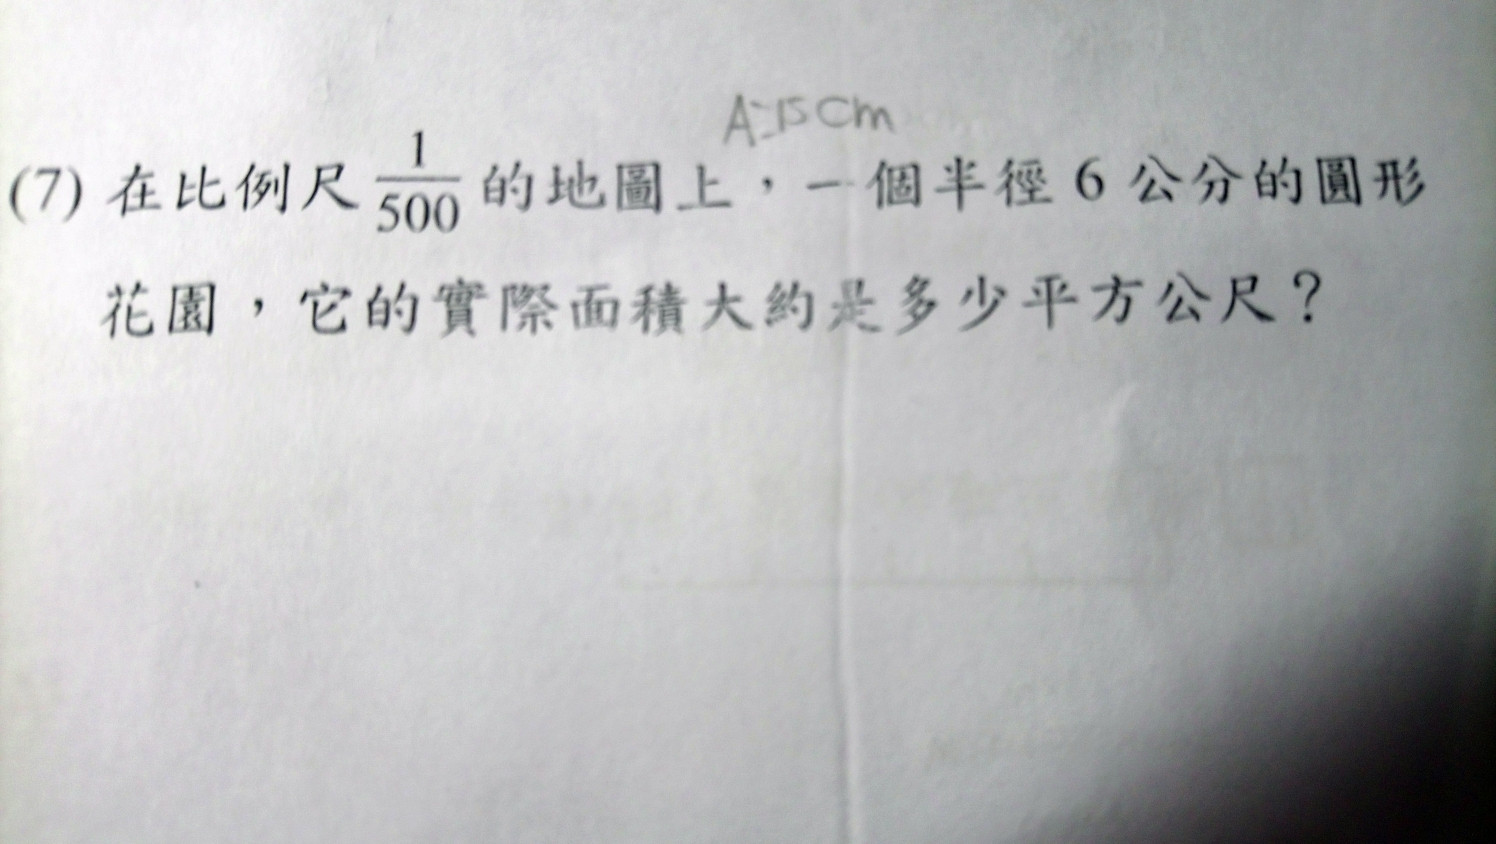 A=15cm
(7) 在比例尺 1/500 的地圖上，一個半徑 6 公分的圓形
花園，它的實際面積大約是多少平方公尺？